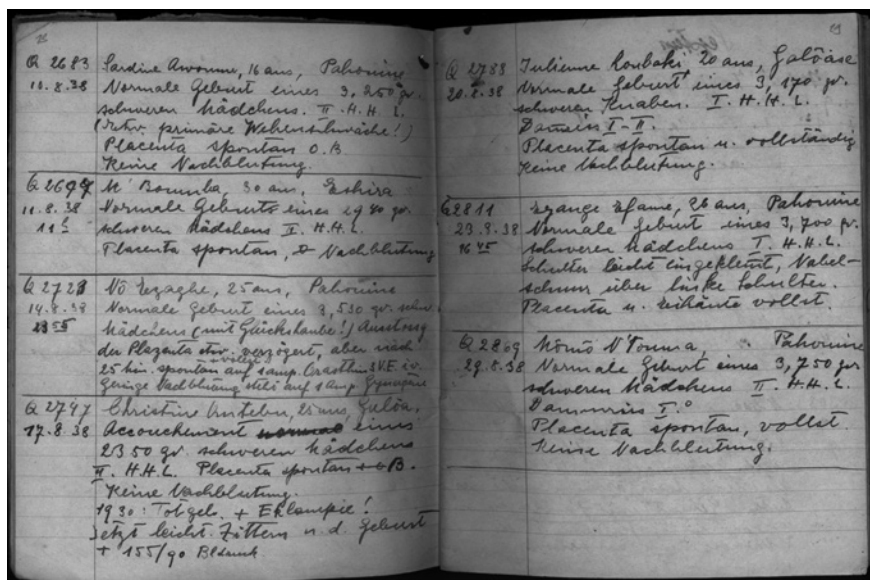 Q 2683 Sardine Awoume, 16 ans, Pahouine
10.8.38 Normale Geburt eines 3,250 gr.
schweren Mädchens. II. H.H.L.
(Sehr primäre Wehenschwäche!)
Placenta spontan O.B.
Keine Nachblutung.
M'Boumba, 30 ans, Eshira
11.8.38 Normale Geburt eines 2940 gr.
schweren Mädchens II. H.H.L.
Placenta spontan, Nachblutung
Q 2728 Nô Ezaghe, 25 ans, Pahouine
14.8.38 Normale Geburt eines 3,530 gr. schw.
23 55 Mädchens (mit Glückshaube!)
der Plazenta verzögert, aber nach
25 Min. spontan auf 1 amp. i.v.
Geringe Nachblutung auf 1 amp.
Q 2747 Christine 25 ans, Galôa.
17.8.38 Accouchement eines
2350 gr. schweren Mädchens
II. H.H.L. Placenta spontan
Keine Nachblutung.
1930: Totgeb. + Eklampsie!
Jetzt leicht. Zittern n. d. Geburt
+ 155/90 Bldruck
Q 2788 Julienne 20 ans, Galôase
20.8.38 Normale Geburt eines 3,170 gr.
schweren Knaben. I. H.H.L.
I-II.
Placenta spontan u. vollständig
Keine Nachblutung.
Q 2811 Ezange Efame, 26 ans, Pahouine
23.8.38 Normale Geburt eines 3,700 gr.
16 45 schweren Mädchens I. H.H.L.
Schulter leicht eingeklemt, Nabel-
schnur über linke Schulter.
Placenta u. Eihäute vollst.
Q 2809 Pahouine
29.8.38 Normale Geburt eines 3,750 gr
schweren Mädchens II. H.H.L.
I.°
Placenta spontan, vollst.
Keine Nachblutung.